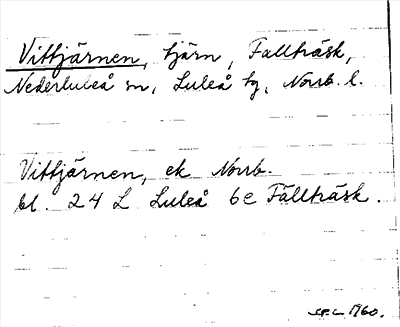 Vittjärnen, tjärn, Fallträsk,
Nederluleå sn, Luleå kg, Norrb. l.
Vittjärnen, ek Norrb.
bl. 24 L Luleå 6e Fällträsk.
1960.